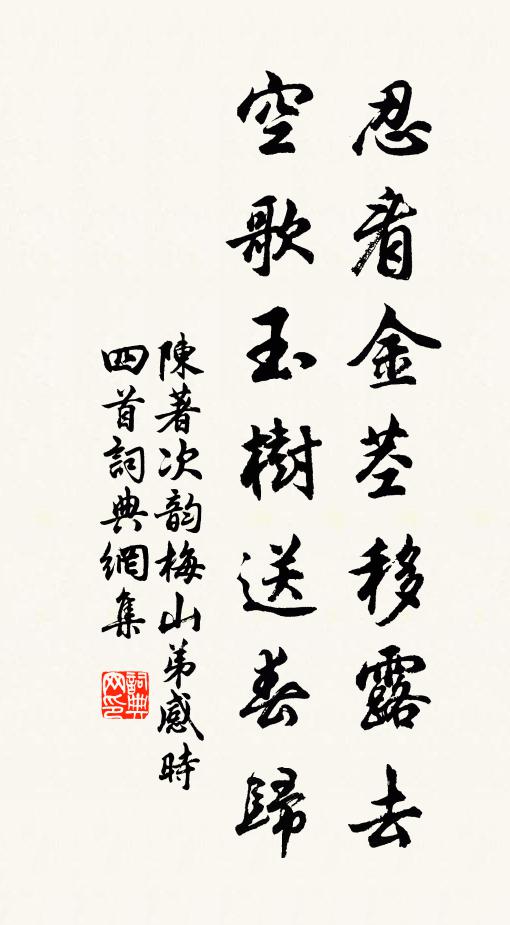 忍看金茎移露去
空歌玉樹送春歸
陳著次韵梅山弟感時
四首詞典網集
詞典网印